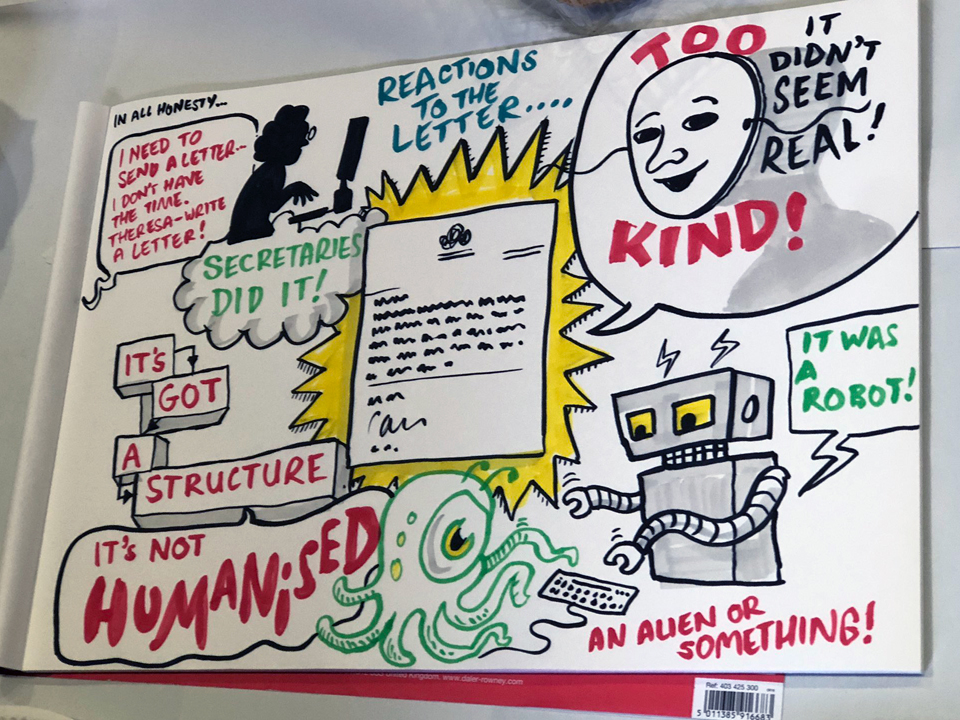 IN ALL HONESTY...
I NEED TO
SEND A LETTER...
I DON'T HAVE
THE TIME.
THERESA-WRITE
A LETTER!
SECRETARIES
DID IT!
REACTIONS
TO THE
LETTER....
TOO
KIND!
IT
DIDN'T
SEEM
REAL!
IT'S
GOT
A
STRUCTURE
IT WAS
A
ROBOT!
IT'S NOT
HUMANiSED
AN ALIEN OR
SOMETHING!
United Kingdom, www.daler-rowney.com
Ref: 403 425 300
5 011385 916683